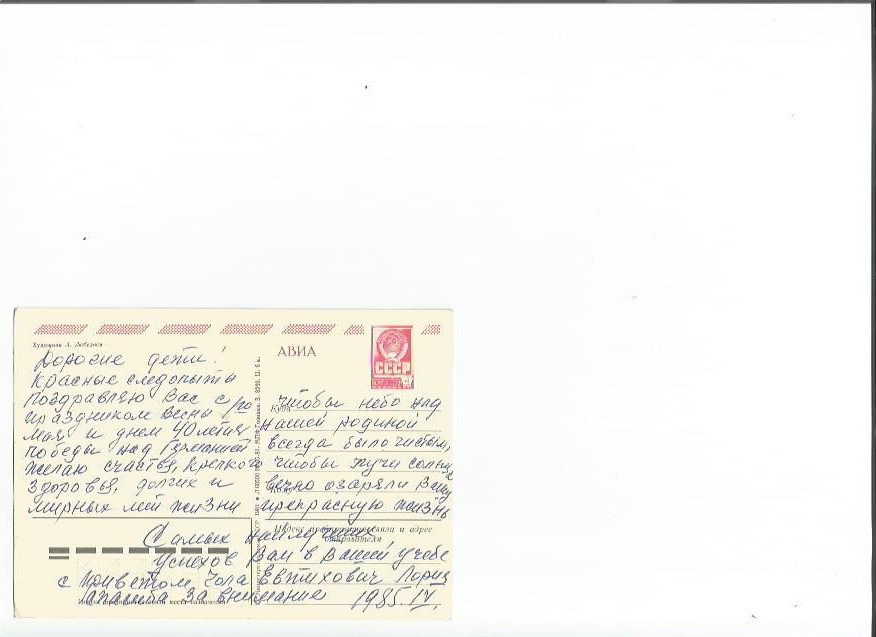 Художник А. Любезнов
АВИА
СССР
Дорогие дети!
Красные следопыты
Поздравляю Вас с
праздником весны 1го
мая и днем 40летия
победы над Германией
желаю счастья, крепкого
здоровья, долгих и
мирных лет жизни
чтобы небо над
нашей родиной
всегда было чистым,
чтобы лучи солнца
вечно озаряли Вашу
прекрасную жизнь
Куда
Кому
Индекс предприятия связи и адрес
отправителя
Самых наилучших
успехов Вам в Вашей учебе
с приветом, Чола Евтихович Лория
спасибо за внимание 1985.IV.
Индекс предприятия связи места назначения